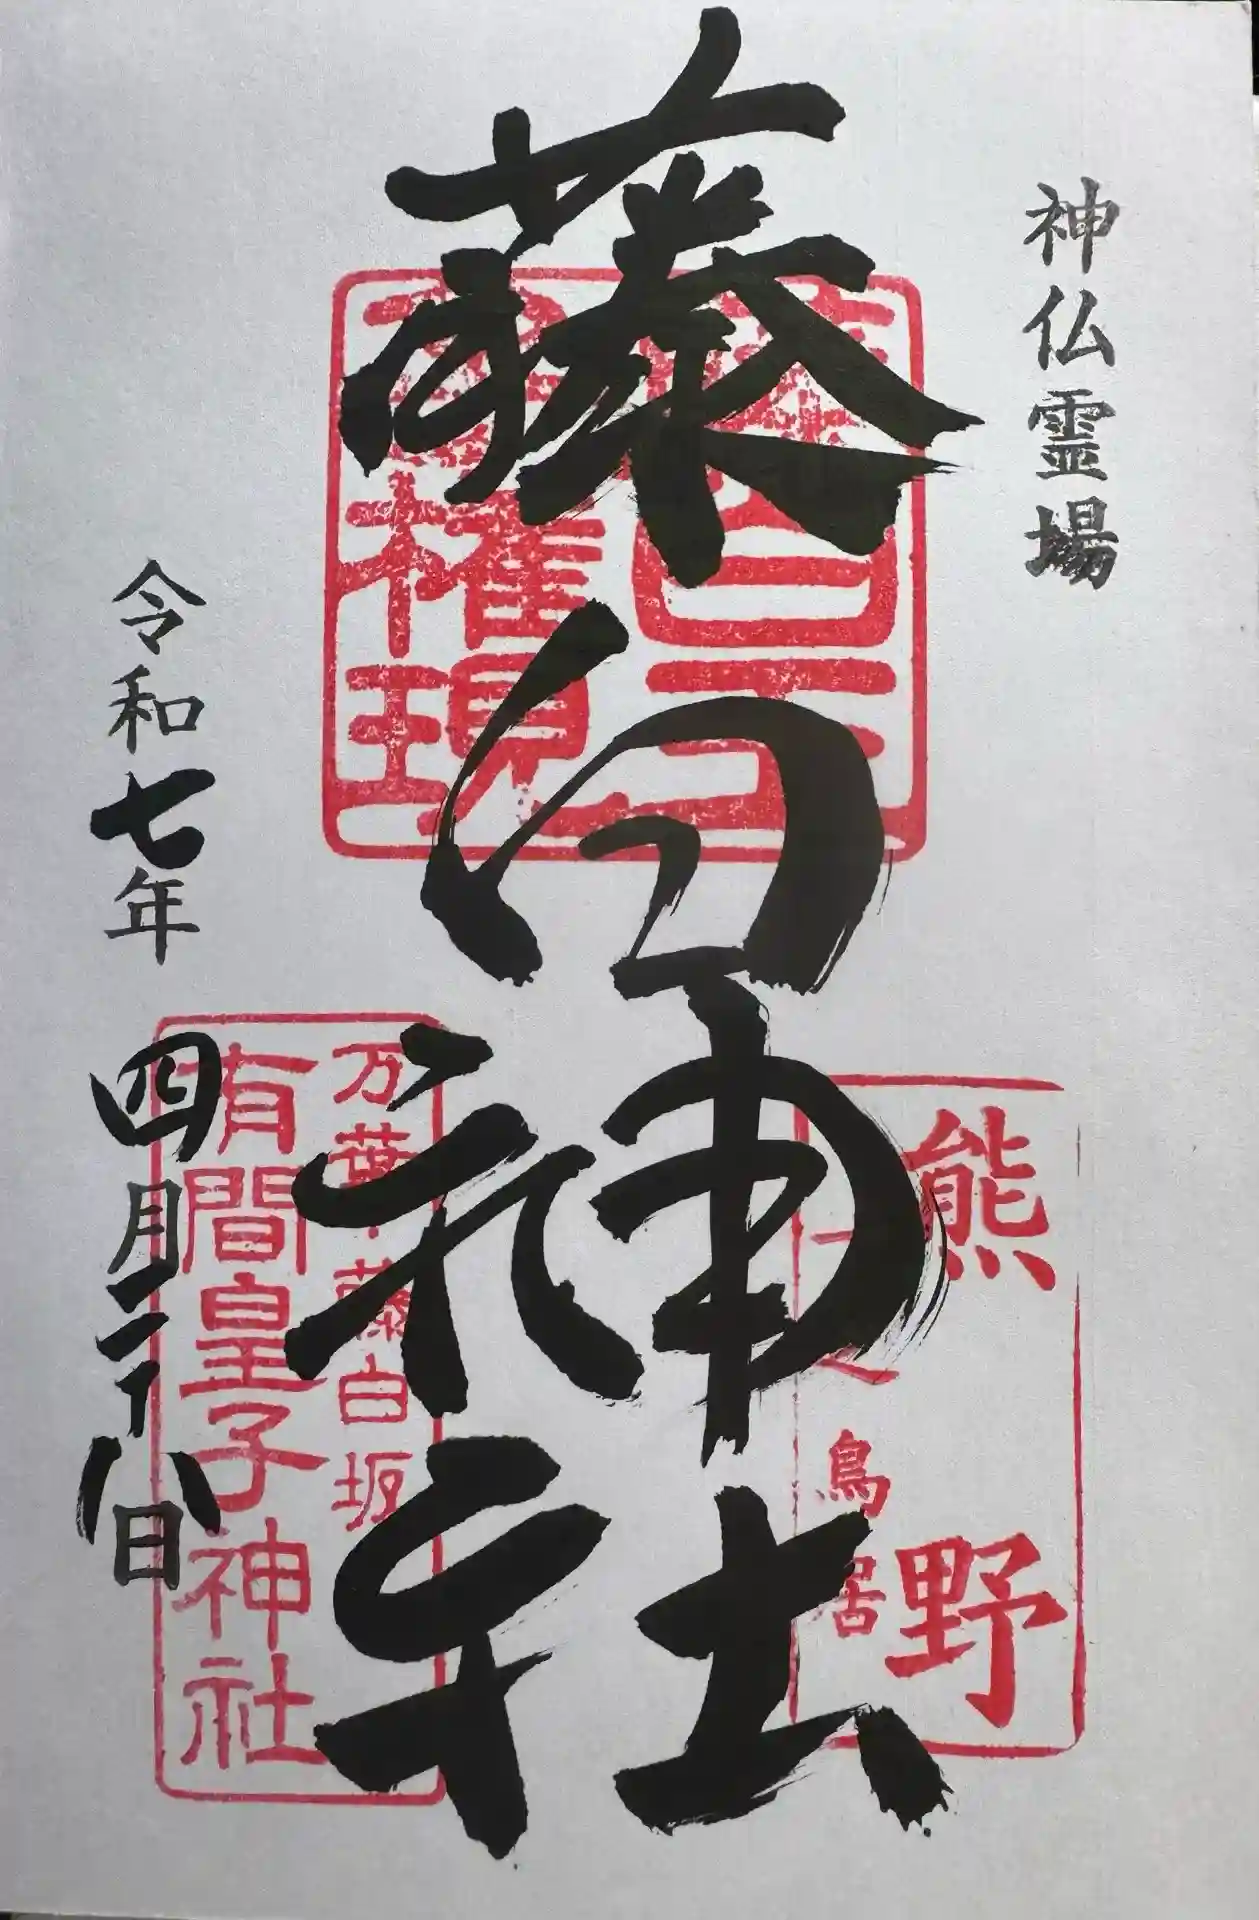 神仏霊場
藤白神社
熊野
一之鳥居
藤白王子
権現
万葉・藤白坂
有間皇子神社
令和七年 四月二十八日